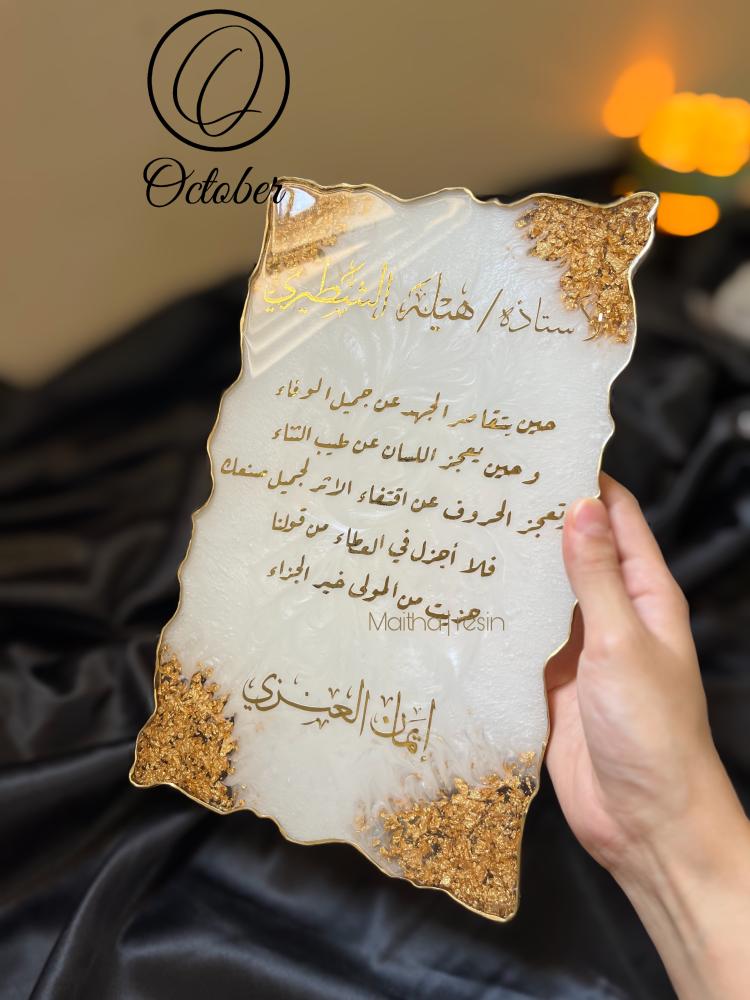 O
October
الأستاذه/ هيلة الشيطيري
حين يتقاصر الجهد عن جميل الوفاء
وحين يعجز اللسان عن طيب الثناء
وتعجز الحروف عن اقتفاء الاثر لجميل صنعك
فلا أجزل في العطاء من قولنا
جزيت من المولى خير الجزاء
Maitha|resin
إيمان العنزي